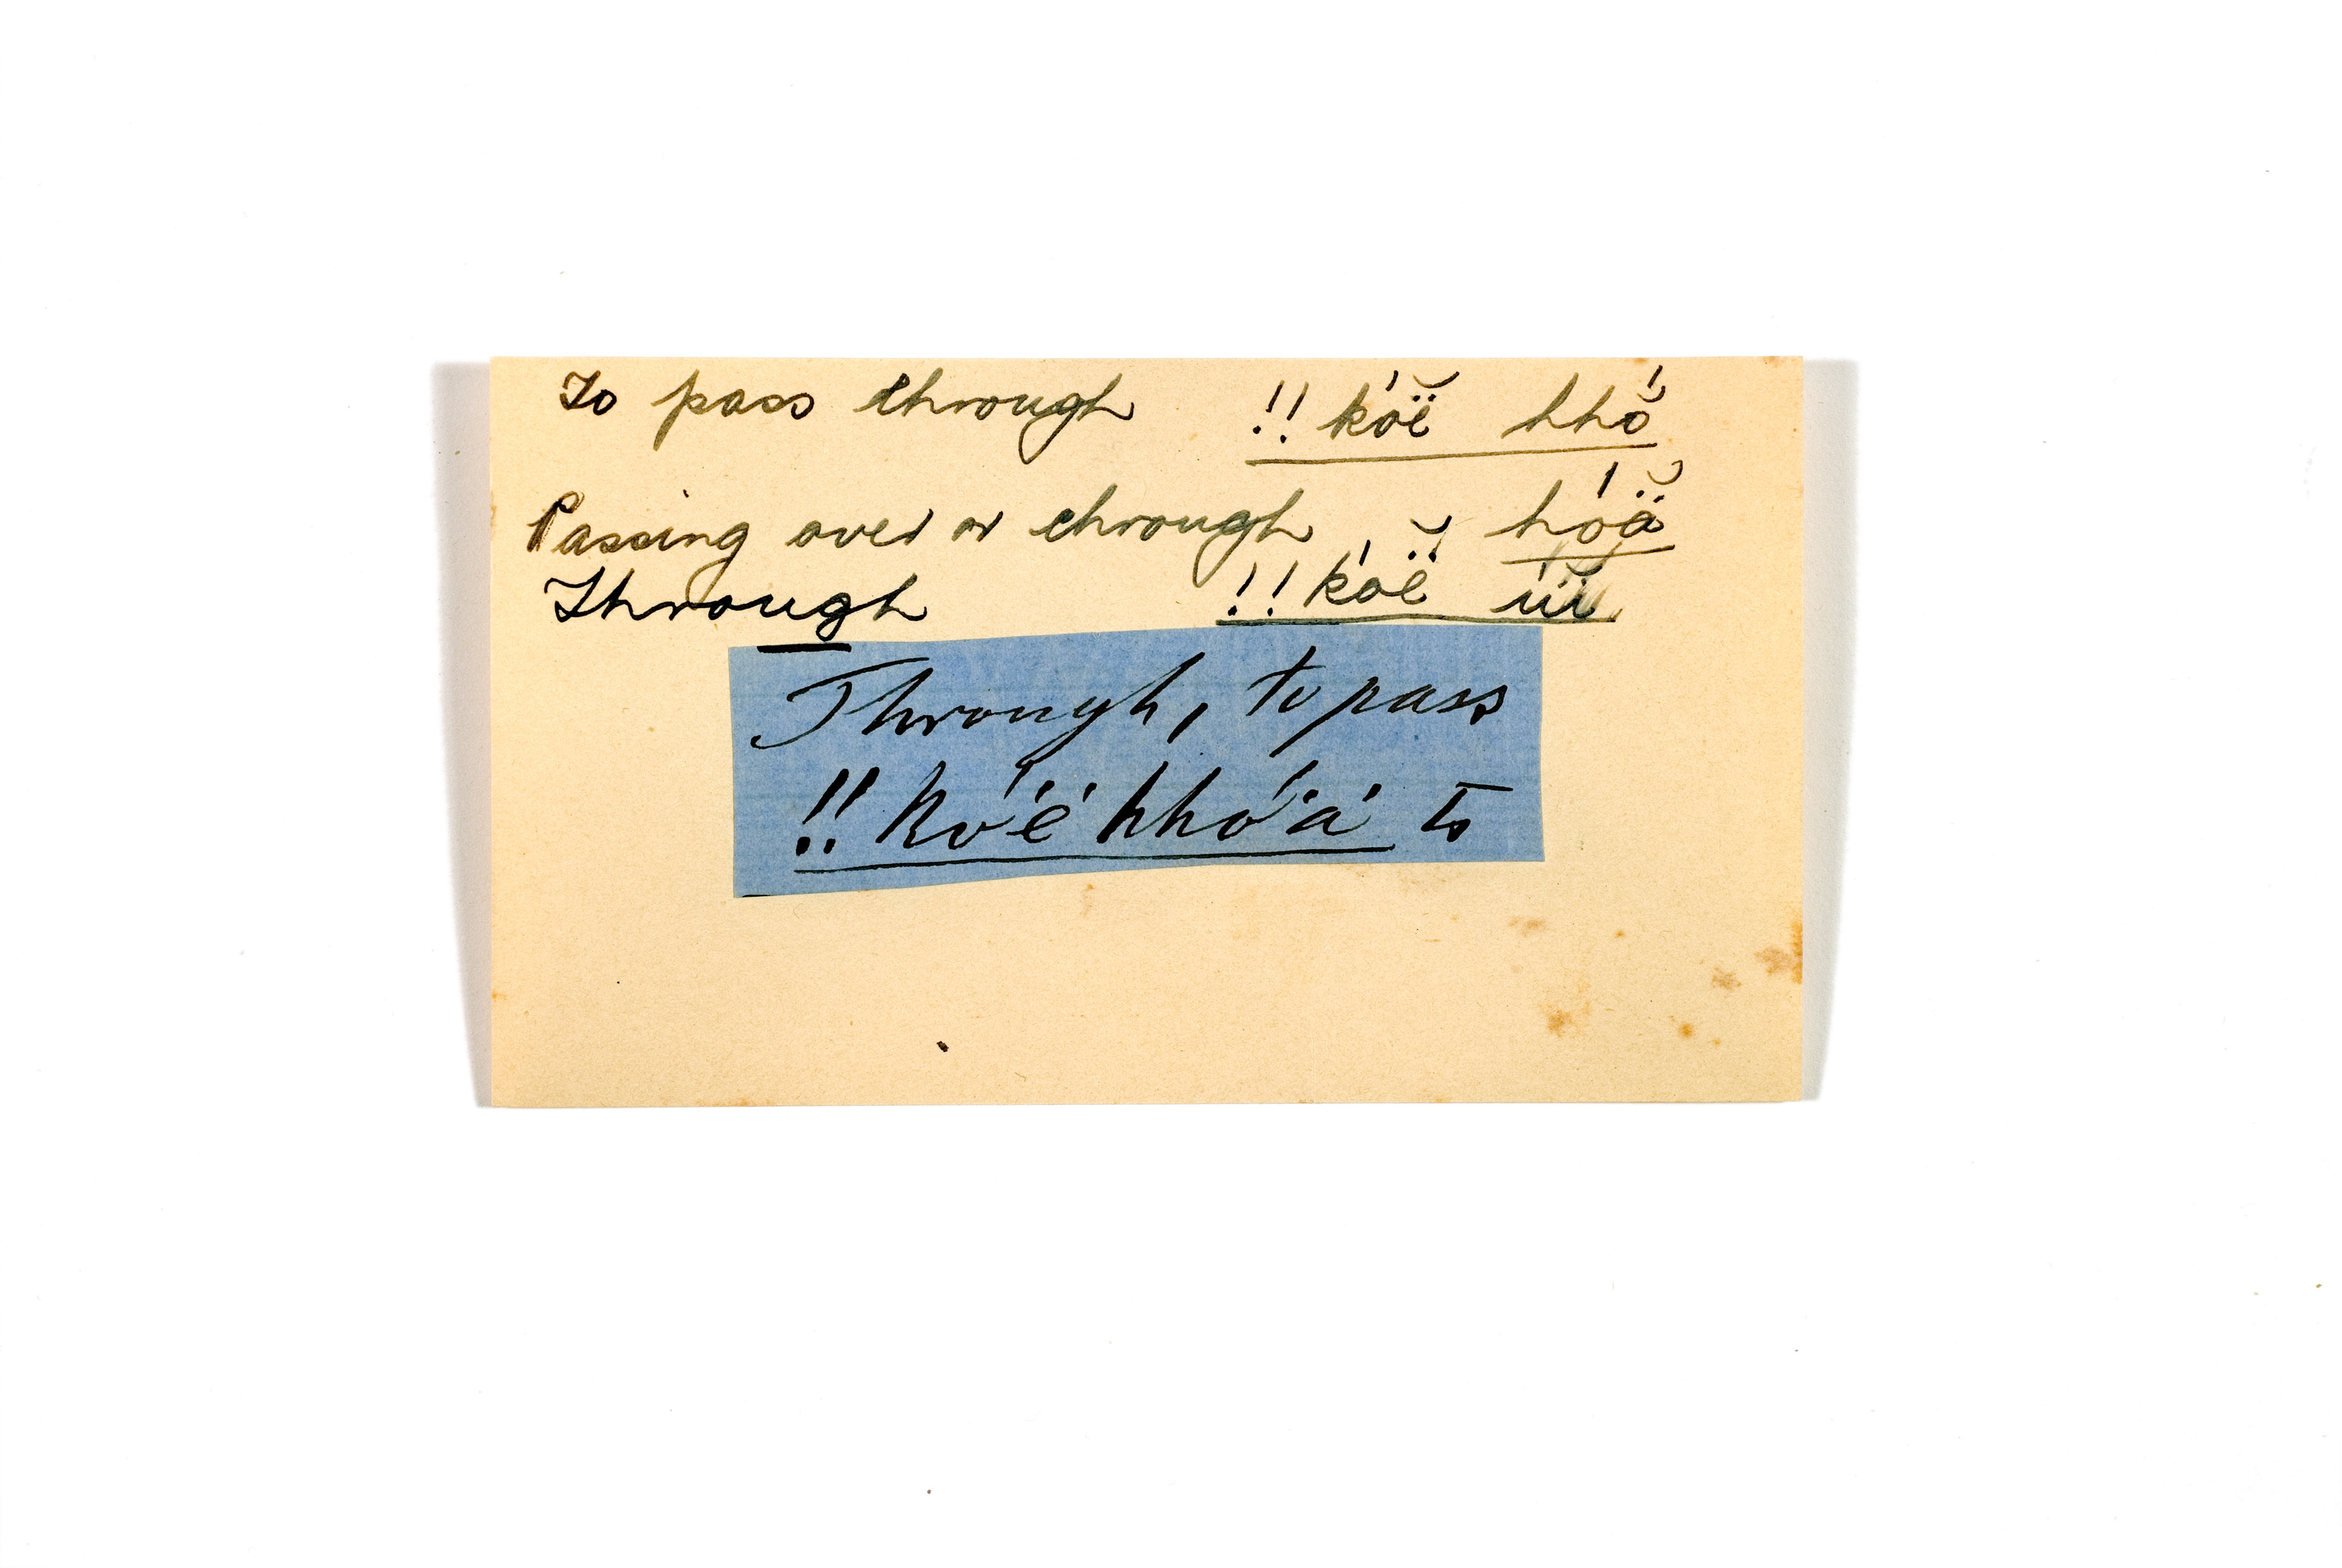 To pass through !! kóë̆ hhó
Passing over or through hóä̆
Through !! kóë̆ úï
Through, to pass
!! kóë́ hhóä́ to